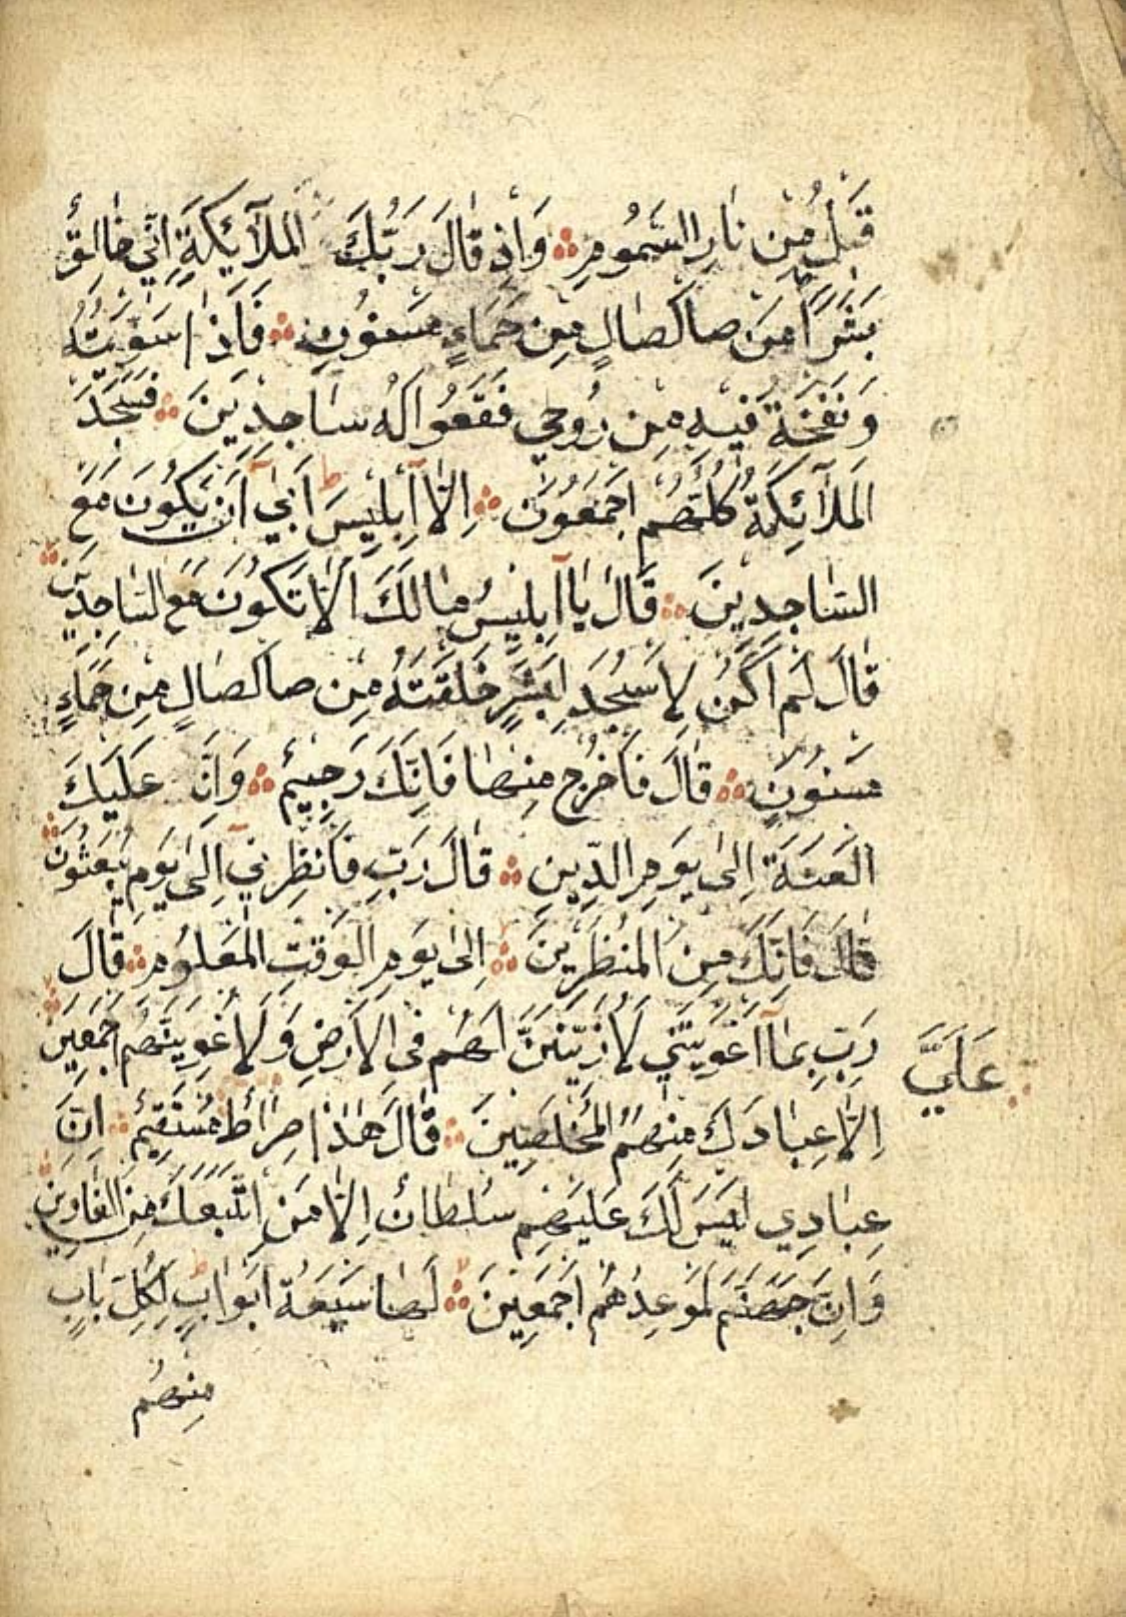 قَبْلُ مِنْ نَارِ السَّمُومِ وَاِذْ قَالَ رَبُّكَ الْمَلَآئِكَةِ اِنّٖي خَالِقٌ
بَشَرًا مِنْ صَاَلْصَالٍ مِنْ حَمَاءٍ مَسْنُونٍ فَاِذَا سَوَّيْتُهُ
وَنَفَخْتُ فٖيهِ مِنْ رُوحٖي فَقَعُوا لَهُ سَاجِدٖينَ فَسَجَدَ
الْمَلَآئِكَةُ كُلُّهُمْ اَجْمَعُونَ اِلَّا اِبْلٖيسَ اَبٰٓي اَنْ يَكُونَ مَعَ
السَّاجِدٖينَ قَالَ يَا اِبْلٖيسُ مَالَكَ اَلَّا تَكُونَ مَعَ السَّاجِدٖينَ
قَالَ لَمْ اَكُنْ لِاَسْجُدَ لِبَشَرٍ خَلَقْتَهُ مِنْ صَاَلْصَالٍ مِنْ حَمَاءٍ
مَسْنُونٍ قَالَ فَاخْرُجْ مِنْهَا فَاِنَّكَ رَجٖيمٌ وَاِنَّ عَلَيْكَ
الَّعْنَةَ اِلٰى يَوْمِ الدّٖينِ قَالَ رَبِّ فَاَنْظِرْنٖٓي اِلٰى يَوْمِ يُبْعَثُونَ
قَالَ فَاِنَّكَ مِنَ الْمُنْظَرٖينَ اِلٰى يَوْمِ الْوَقْتِ الْمَعْلُومِ قَالَ
رَبِّ بِمَآ اَغْوَيْتَنٖي لَاُزَيِّنَنَّ لَهُمْ فِى الْاَرْضِ وَلَاُغْوِيَنَّهُمْ اَجْمَعٖينَ
عَلَيَّ
اِلَّا عِبَادَكَ مِنْهُمُ الْمُخْلَصٖينَ قَالَ هٰذَا صِرَاطٌ مُسْتَقٖيمٌ اِنَّ
عِبَادٖي لَيْسَ لَكَ عَلَيْهِمْ سُلْطَانٌ اِلَّا مَنِ اتَّبَعَكَ مِنَ الْغَاوٖينَ
وَاِنَّ جَهَنَّمَ لَمَوْعِدُهُمْ اَجْمَعٖينَ لَهَا سَبْعَةُ اَبْوَابٍ لِكُلِّ بَابٍ
مِنْهُمْ